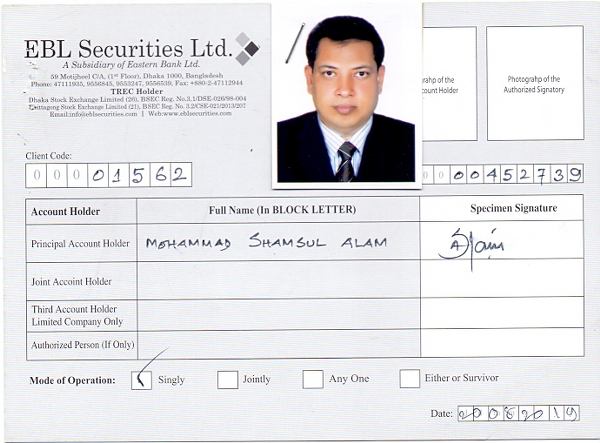 EBL Securities Ltd.
A Subsidiary of Eastern Bank Ltd.
59 Motijheel C/A, (1st Floor), Dhaka 1000, Bangladesh
Phone: 47111935, 9556845, 9553247, 9556539, Fax: +880-2-47112944
TREC Holder
Dhaka Stock Exchange Limited (26), BSEC Reg. No.3.1/DSE-026/98-004
Chittagong Stock Exchange Limited (21), BSEC Reg. No. 3.2/CSE-021/2013/207
Email:info@eblsecurities.com | Web:www.eblsecurities.com
grahp of the
ount Holder
Photograhp of the
Authorized Signatory
Client Code:
0 0 0 0 1 5 6 2
0 0 0 4 5 2 7 3 9
Account Holder Full Name (In BLOCK LETTER) Specimen Signature
Principal Account Holder MOHAMMAD SHAMSUL ALAM
Joint Accoint Holder
Third Account Holder
Limited Company Only
Authorized Person (If Only)
Mode of Operation: Singly Jointly Any One Either or Survivor
Date: 20082019